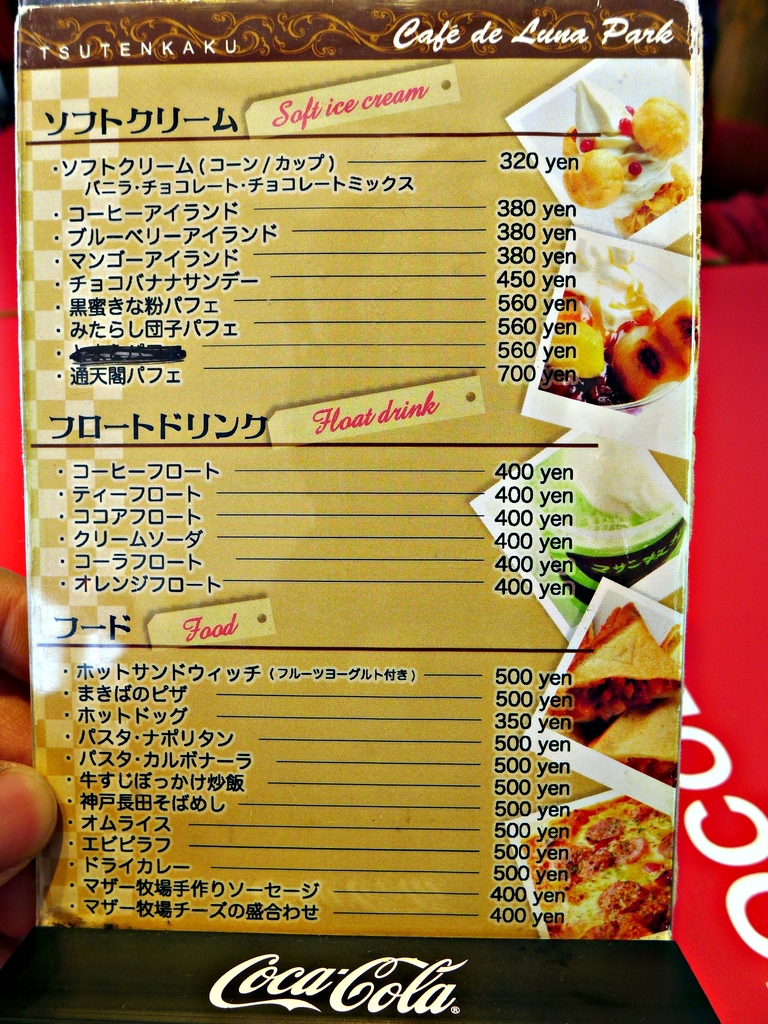 TSUTENKAKU Café de Luna Park
ソフトクリーム Soft ice cream
・ソフトクリーム(コーン/カップ) 320 yen
バニラ・チョコレート・チョコレートミックス
・コーヒーアイランド 380 yen
・ブルーベリーアイランド 380 yen
・マンゴーアイランド 380 yen
・チョコバナナサンデー 450 yen
・黒蜜きな粉パフェ 560 yen
・みたらし団子パフェ 560 yen
・ 560 yen
・通天閣パフェ 700 yen
フロートドリンク Float drink
・コーヒーフロート 400 yen
・ティーフロート 400 yen
・ココアフロート 400 yen
・クリームソーダ 400 yen
・コーラフロート 400 yen
・オレンジフロート 400 yen
フード Food
・ホットサンドウィッチ(フルーツヨーグルト付き) 500 yen
・まきばのピザ 500 yen
・ホットドッグ 350 yen
・パスタ・ナポリタン 500 yen
・パスタ・カルボナーラ 500 yen
・牛すじぼっかけ炒飯 500 yen
・神戸長田そばめし 500 yen
・オムライス 500 yen
・エビピラフ 500 yen
・ドライカレー 500 yen
・マザー牧場手作りソーセージ 400 yen
・マザー牧場チーズの盛合わせ 400 yen
Coca-Cola®